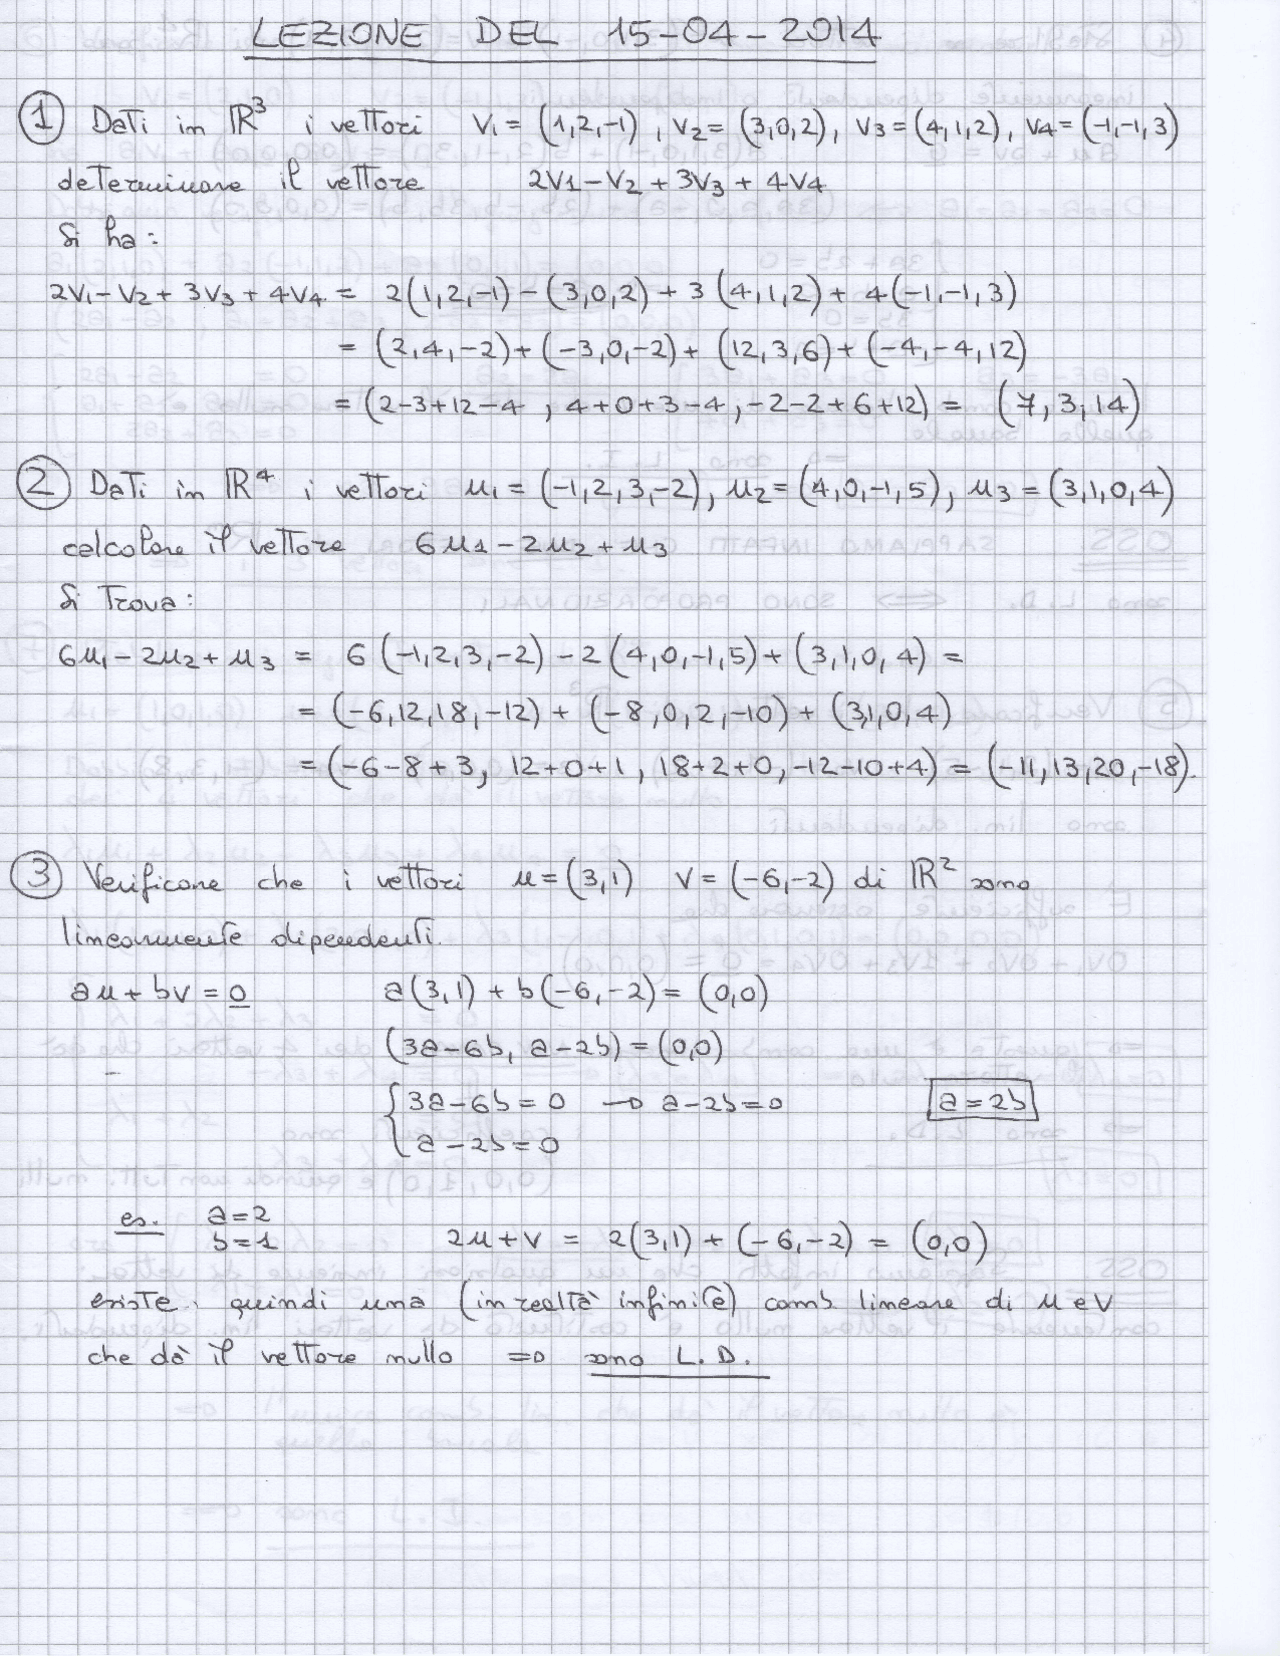 LEZIONE DEL 15-04-2014
① Dati in ℝ³ i vettori v₁ = (1,2,-1), v₂ = (3,0,2), v₃ = (4,1,2), v₄ = (-1,-1,3)
determinare il vettore 2v₁-v₂+3v₃+4v₄
Si ha:
2v₁-v₂+3v₃+4v₄ = 2(1,2,-1)-(3,0,2)+3(4,1,2)+4(-1,-1,3)
= (2,4,-2)+(-3,0,-2)+(12,3,6)+(-4,-4,12)
= (2-3+12-4, 4+0+3-4, -2-2+6+12) = (7,3,14)
② Dati in ℝ⁴ i vettori u₁ = (-1,2,3,-2), u₂ = (4,0,-1,5), u₃ = (3,1,0,4)
calcolare il vettore 6u₁-2u₂+u₃
Si trova:
6u₁-2u₂+u₃ = 6(-1,2,3,-2)-2(4,0,-1,5)+(3,1,0,4) =
= (-6,12,18,-12)+(-8,0,2,-10)+(3,1,0,4)
= (-6-8+3, 12+0+1, 18+2+0, -12-10+4) = (-11,13,20,-18).
③ Verificare che i vettori u=(3,1) v=(-6,-2) di ℝ² sono
linearmente dipendenti.
au+bv=0 a(3,1)+b(-6,-2)=(0,0)
(3a-6b, a-2b)=(0,0)
{3a-6b=0 → a-2b=0 a=2b
a-2b=0
es. a=2
b=1 2u+v = 2(3,1)+(-6,-2) = (0,0)
esiste, quindi una (in realtà infinite) comb lineare di u e v
che dà il vettore nullo ⇒ sono L.D.